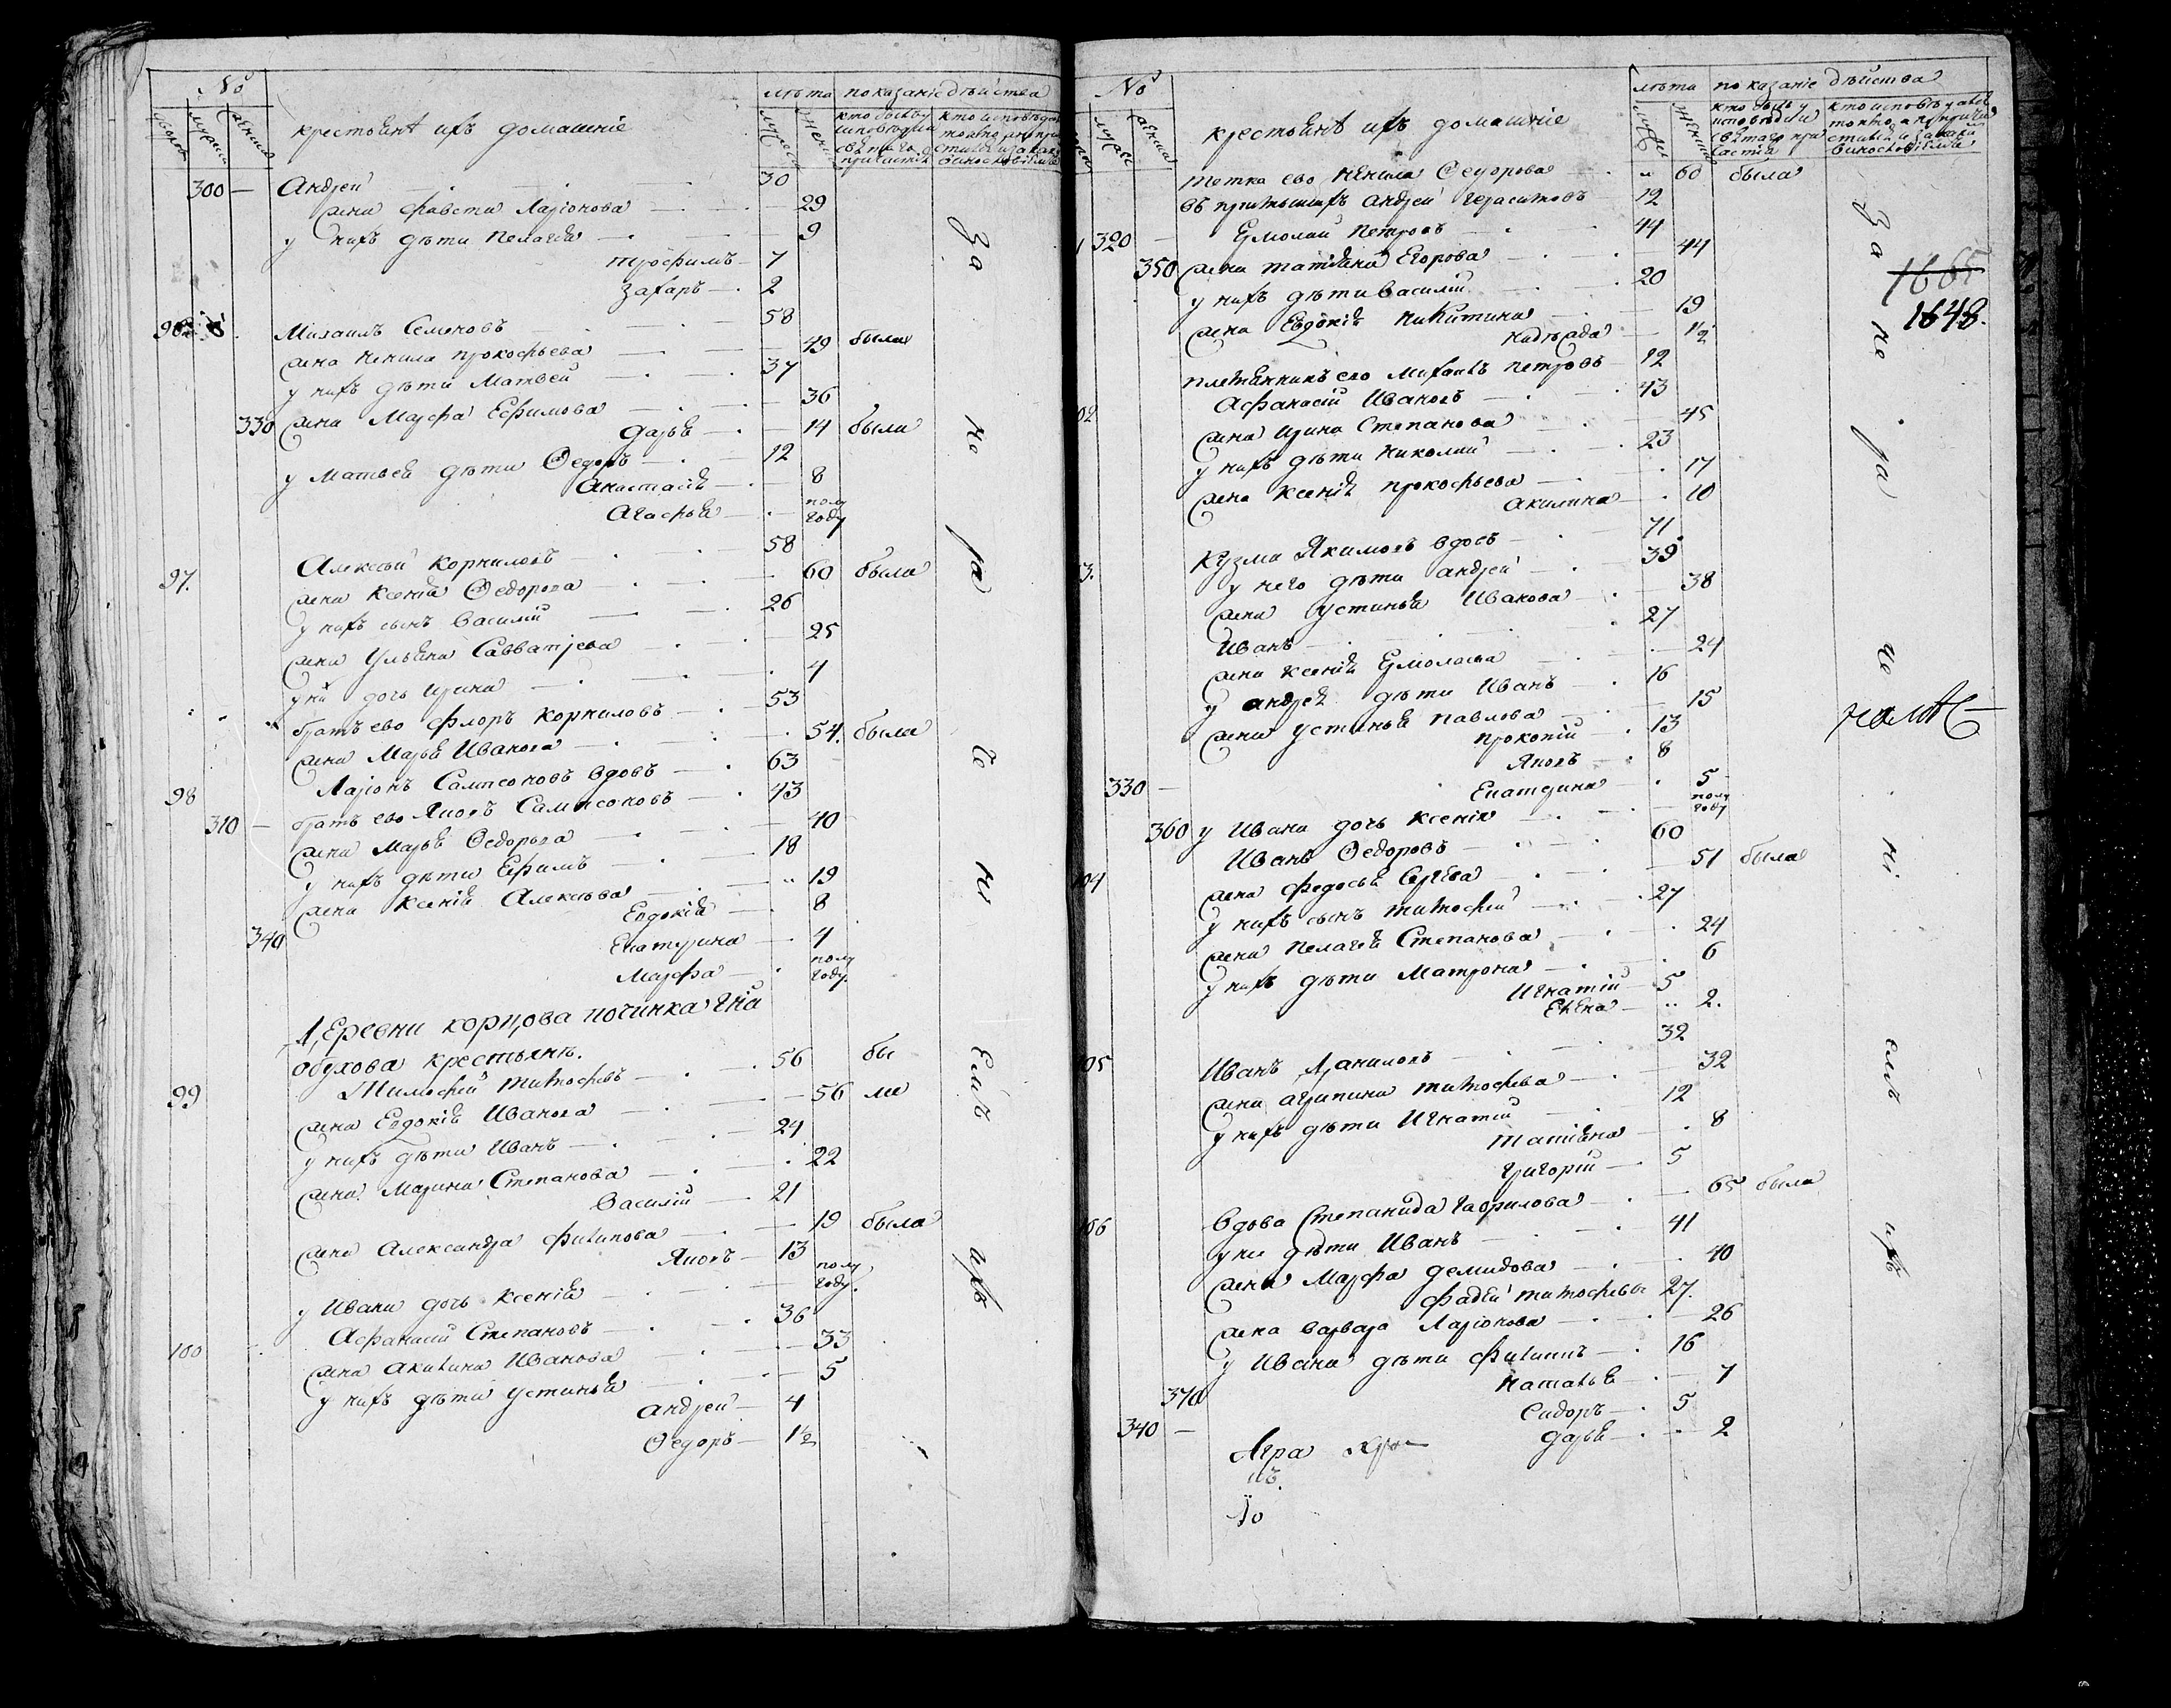 № лѣта показаніе дѣйства
дворов мужеск женска крестьянѣ ихъ домашніе мужеск женск
300 — Андрей 30
жена Фавста Ларіонова 29
у нихъ дѣти Пелагея 9
Трофимъ 7
Захаръ 2
96 Михаилъ Семеновъ 58
жена Ненила Прокофьева 49 была
у нихъ дѣти Матвей 37
жена Марфа Ефимова 36
330 Дарья 14 была
у Матвея дѣти Ѳедоръ 12
Анастасія 8
Агафья полу году
97. Алексей Корниловъ 58
жена Ксенія Ѳедорова 60 была
у нихъ сынъ Василій 26
жена Ульяна Савватіева 25
у ни дочь Ирина 4
братъ ево Флоръ Корниловъ 53
жена Марья Иванова 54. была
98 Ларіонъ Сампсоновъ вдовъ 63
310 — братъ ево Яковъ Сампсоновъ 43
жена Марья Ѳедорова 40
у нихъ дѣти Ефимъ 18
жена Ксенія Алексѣева 19
Евдокія 8
340 Екатерина 4
Марфа полу году.
Деревни корцова починка гна
обухова крестьянѣ.
99 Тимофей Тимофѣевъ 56 бы
жена Евдокія Иванова 56 ли
у нихъ дѣти Иванъ 24
жена Марина Степанова 22
Василій 21
жена Александра Филипова 19 была
Яковъ 13
у Ивана дочь Ксенія полу году.
100 Афанасий Степановъ 36
жена Акилина Иванова 33
у нихъ дѣти Устинья 5
Андрей 4
Ѳедоръ 1½
За не ра че ні емъ ихъ
№ лѣта показаніе дѣйства
крестьянѣ ихъ домашніе
тетка ево Ненила Ѳедорова 60 была
въ пріемышахъ Андрей Герасимовъ 12
320 — Ермолай Петровъ 44
350 жена Татіана Егорова 44
у нихъ дѣти Василій 20
жена Евдокія Никитина 19
Надежда 1½
племянникъ ево Михаилъ Петровъ 12
02 Афанасій Ивановъ 43
жена Ирина Степанова 45
у нихъ дѣти Николай 23
жена Ксенія Прокофьева 17
Акилина 10
3. Кузма Якимовъ вдовъ 71
у него дѣти Андрей 39
жена Устинья Иванова 38
Иванъ 27
жена Ксенія Ермолаева 24
у Андрея дѣти Иванъ 16
жена Устинья Павлова 15
Прокопій 13
Яковъ 8
330 — Екатерина 5
360 у Ивана дочь Ксенія полу году
104 Иванъ Ѳедоровъ 60
жена Федосья Сергѣева 51 была
у нихъ сынъ Тимофей 27
жена Пелагея Степанова 24
у нихъ дѣти Матрона 6
Игнатій 5
Елена 2.
105 Иванъ Даниловъ 32
жена Агрипина Тимофѣева 32
у нихъ дѣти Игнатій 12
Татіана 8
Григорій 5
106 Вдова Степанида Гаврилова 65 была
у ней дѣти Иванъ 41
жена Марфа Демидова 40
Фадей Тимофѣевъ 27.
жена Варвара Ларіонова 26
у Ивана дѣти Филипъ 16
370 Наталья 7
Сидоръ 5
340 — Дарья 2
За не ра че ні емъ ихъ
1665
1648.